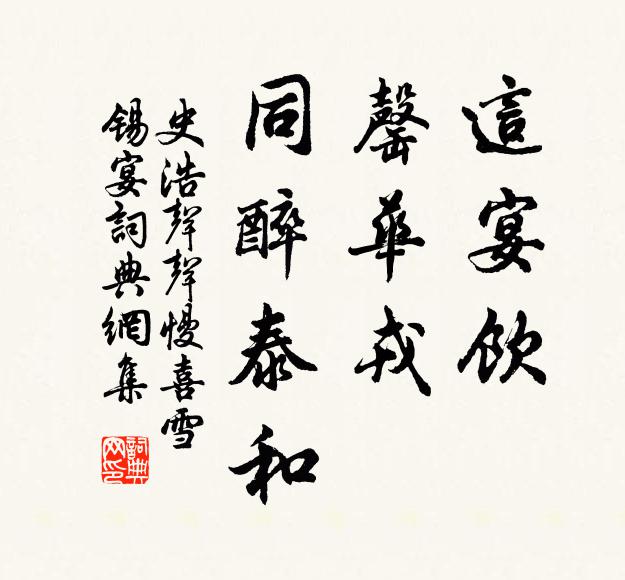 這宴飲
罄華戎
同醉泰和
史浩聲聲慢喜雪
錫宴詞典網集
詞典網印